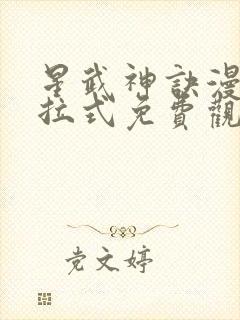 星武神訣漫
拉式免費觀
党文婷